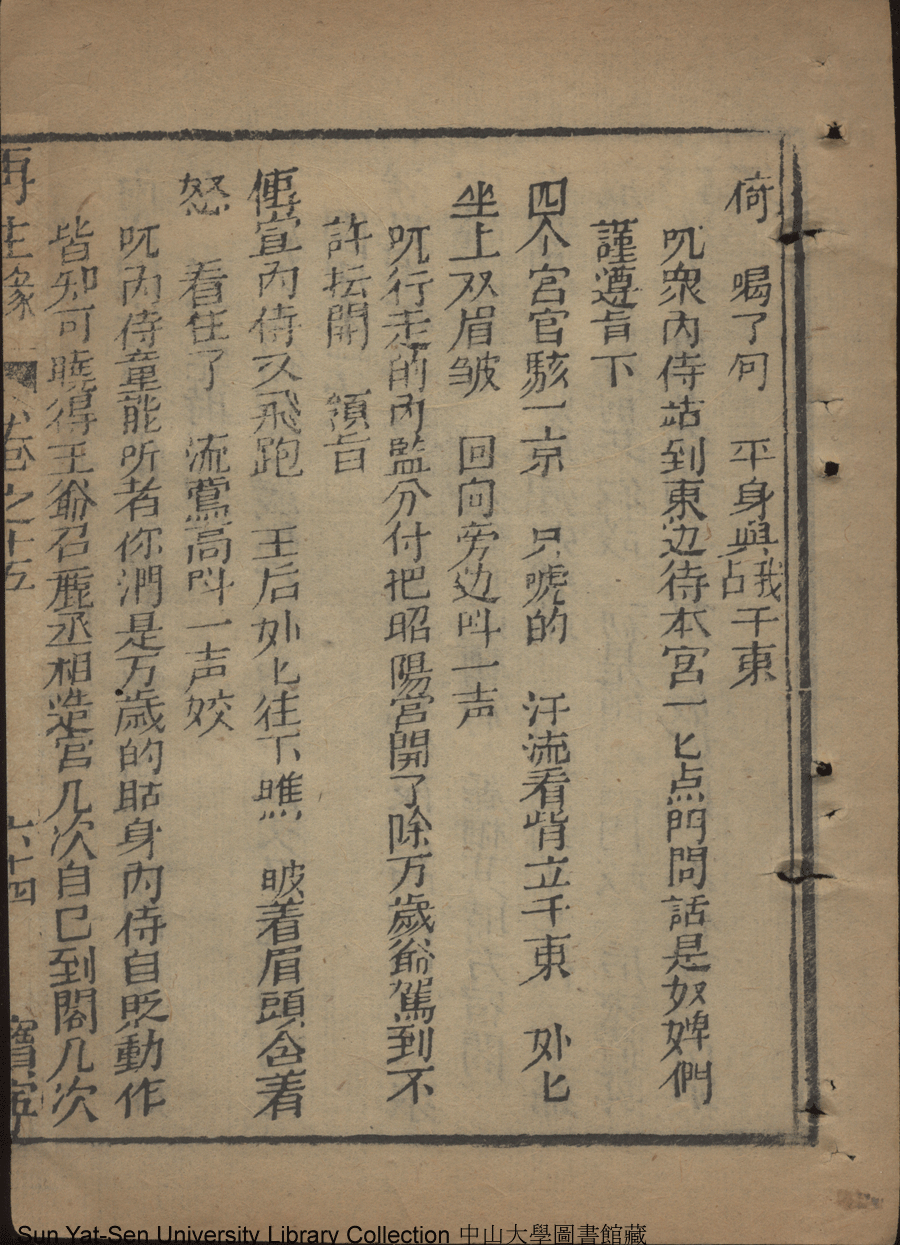 倚　喝了句　平身與我占于東
吼衆內侍站到東边待本宮一匕点門問話是奴婢們
謹遵旨下
四个宮官駭一京　只唬的　汗流看背立于東　处匕
坐上双眉皱　回向旁边呌一声
吼行走的內監分付把昭陽宮開了除万歲爺駕到不
許抎開　領旨
傳宣內侍又飛跑　王后处匕往下瞧　皱着眉頭含着
怒　看住了　流鶯高呌一声姣
吼內侍童能所者你們是万歲的贴身內侍自贬動作
皆知可曉得王爺召鹿丞相造宮几次自已到閣几次
再生緣　卷之十五　六十四　寶寧
Sun Yat-Sen University Library Collection 中山大學圖書館藏